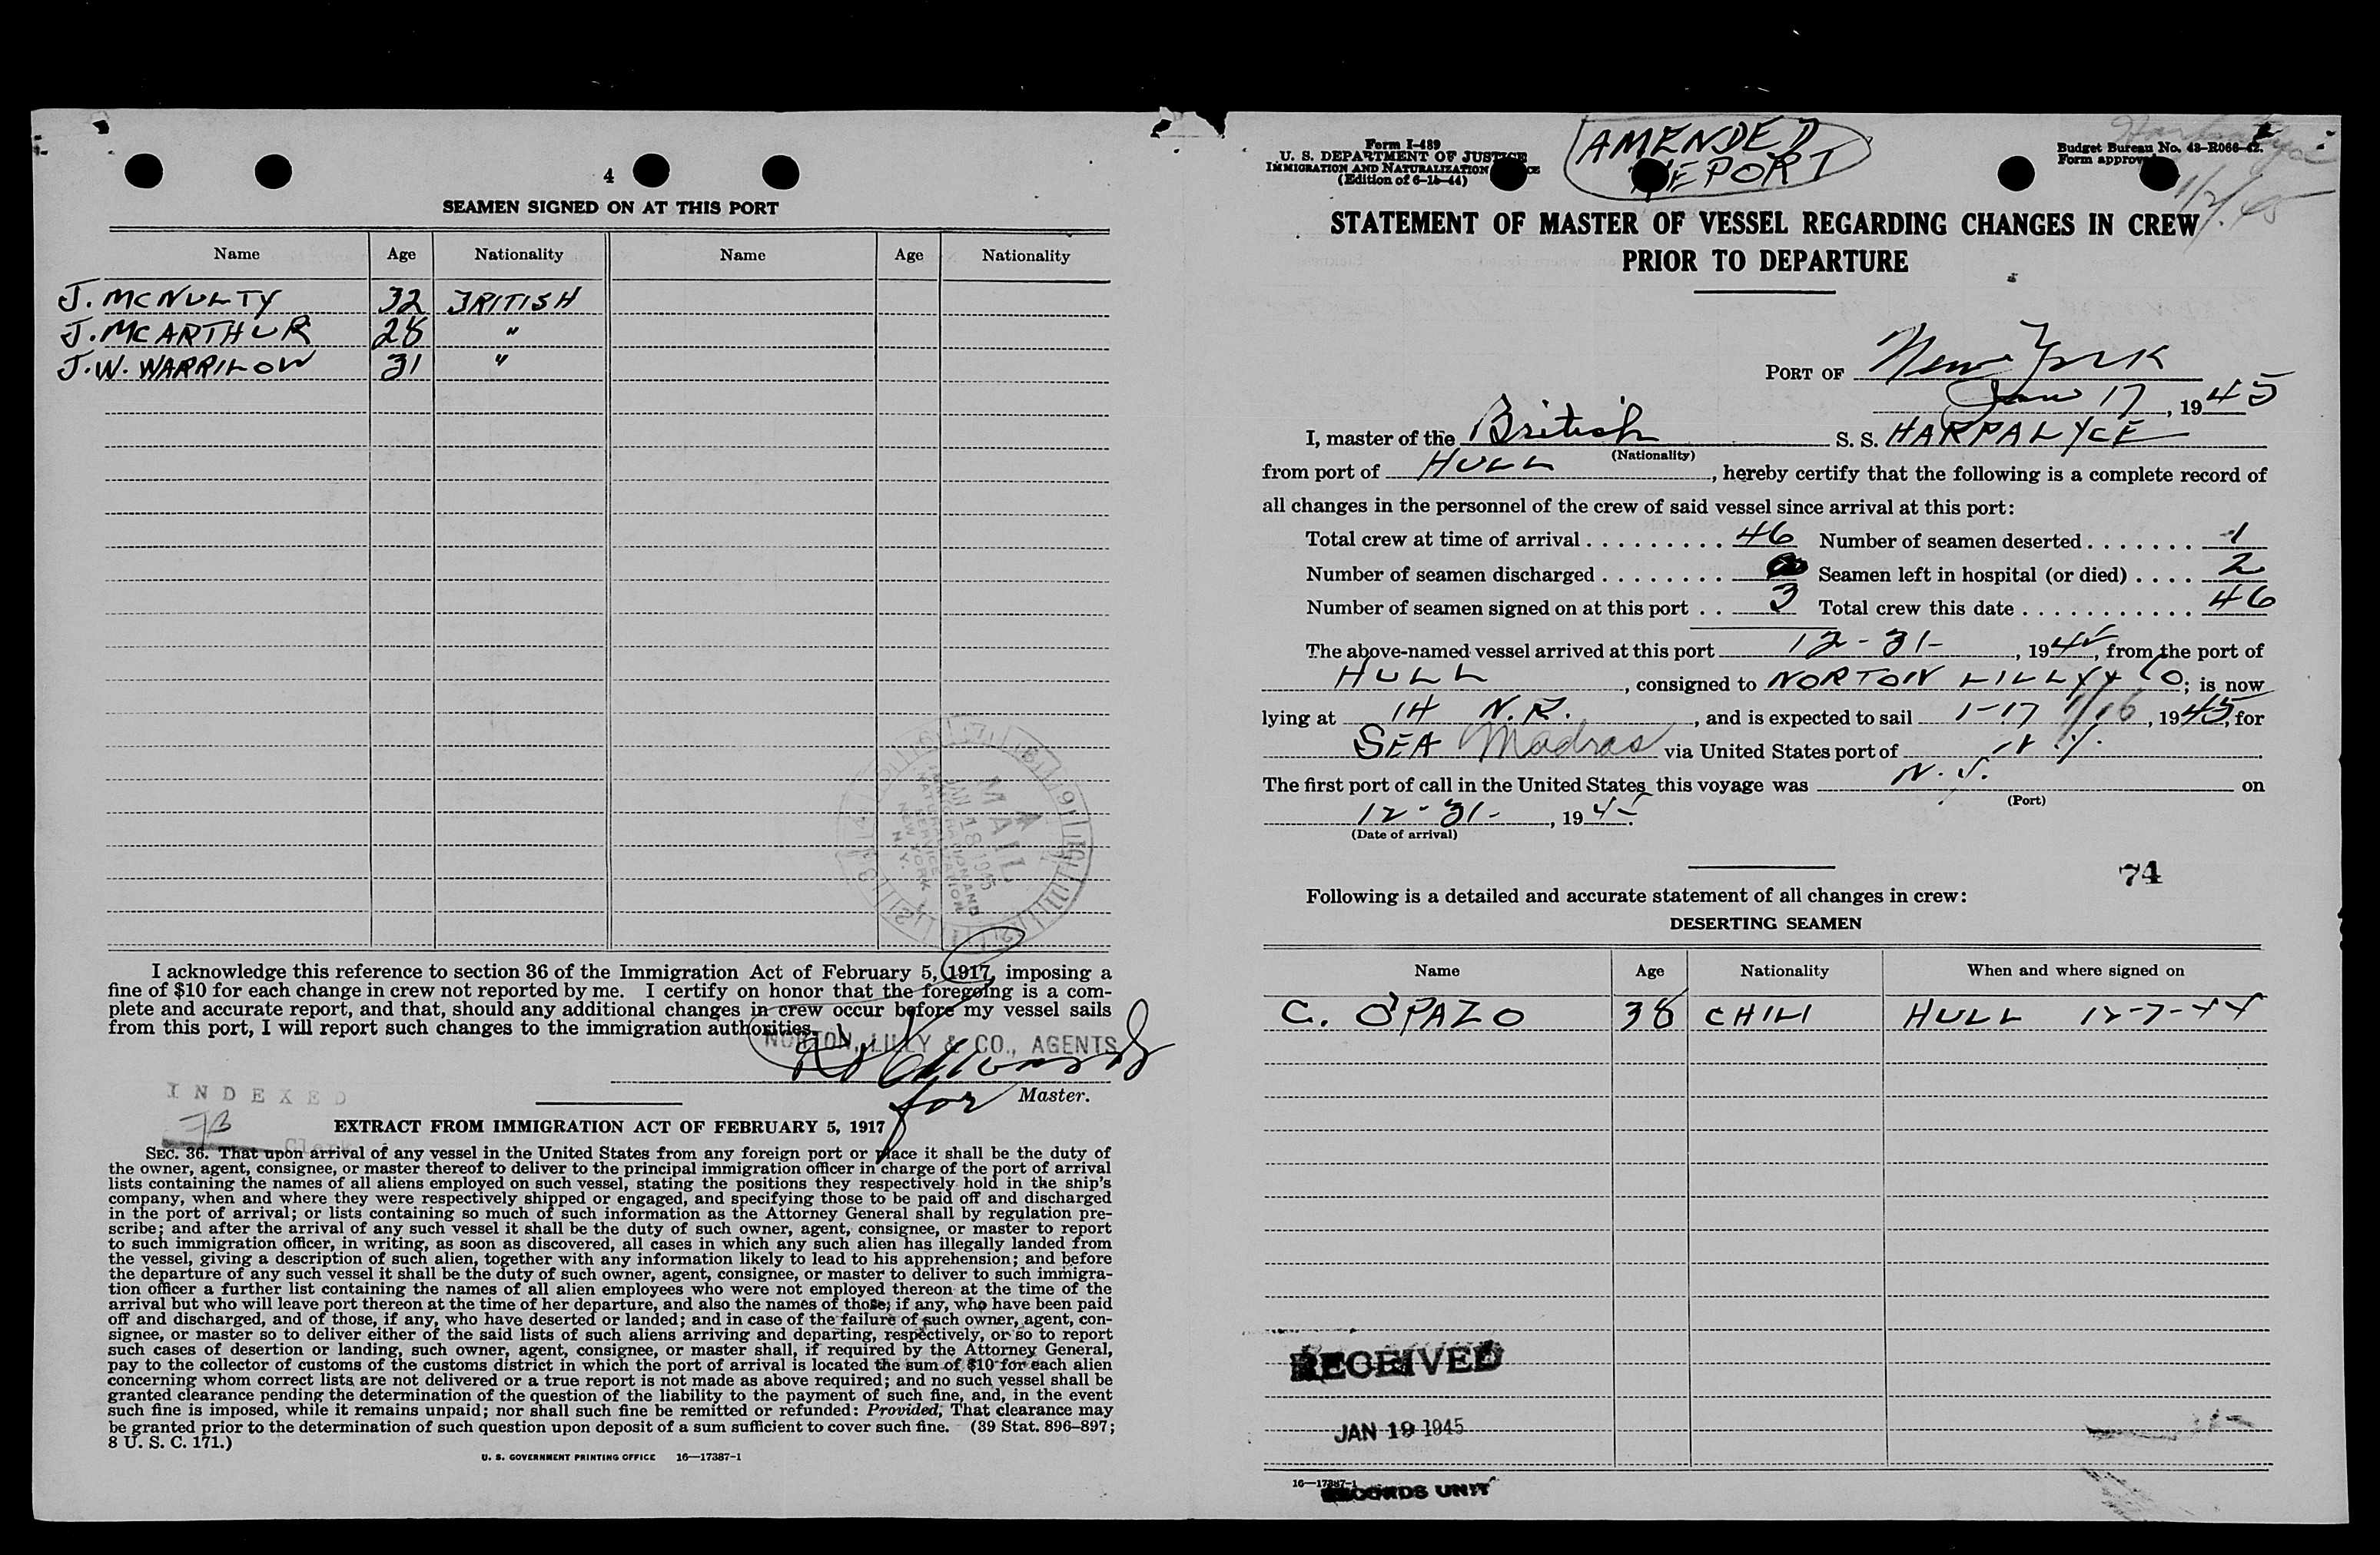 4
SEAMEN SIGNED ON AT THIS PORT
Name Age Nationality Name Age Nationality
J. MCNULTY 32 BRITISH
J. MCARTHUR 28 "
J. W. WARRILOW 31 "
MAIL
JAN 18 1945
IMMIGRATION AND
NATURALIZATION
SERVICE
NEW YORK
N.Y.
I acknowledge this reference to section 36 of the Immigration Act of February 5, 1917, imposing a
fine of $10 for each change in crew not reported by me. I certify on honor that the foregoing is a com-
plete and accurate report, and that, should any additional changes in crew occur before my vessel sails
from this port, I will report such changes to the immigration authorities.
NORTON, LILLY & CO., AGENTS
for Master.
INDEXED
Clerk
EXTRACT FROM IMMIGRATION ACT OF FEBRUARY 5, 1917
SEC. 36. That upon arrival of any vessel in the United States from any foreign port or place it shall be the duty of
the owner, agent, consignee, or master thereof to deliver to the principal immigration officer in charge of the port of arrival
lists containing the names of all aliens employed on such vessel, stating the positions they respectively hold in the ship's
company, when and where they were respectively shipped or engaged, and specifying those to be paid off and discharged
in the port of arrival; or lists containing so much of such information as the Attorney General shall by regulation pre-
scribe; and after the arrival of any such vessel it shall be the duty of such owner, agent, consignee, or master to report
to such immigration officer, in writing, as soon as discovered, all cases in which any such alien has illegally landed from
the vessel, giving a description of such alien, together with any information likely to lead to his apprehension; and before
the departure of any such vessel it shall be the duty of such owner, agent, consignee, or master to deliver to such immigra-
tion officer a further list containing the names of all alien employees who were not employed thereon at the time of the
arrival but who will leave port thereon at the time of her departure, and also the names of those, if any, who have been paid
off and discharged, and of those, if any, who have deserted or landed; and in case of the failure of such owner, agent, con-
signee, or master so to deliver either of the said lists of such aliens arriving and departing, respectively, or so to report
such cases of desertion or landing, such owner, agent, consignee, or master shall, if required by the Attorney General,
pay to the collector of customs of the customs district in which the port of arrival is located the sum of $10 for each alien
concerning whom correct lists are not delivered or a true report is not made as above required; and no such vessel shall be
granted clearance pending the determination of the question of the liability to the payment of such fine, and, in the event
such fine is imposed, while it remains unpaid; nor shall such fine be remitted or refunded: Provided, That clearance may
be granted prior to the determination of such question upon deposit of a sum sufficient to cover such fine. (39 Stat. 896–897;
8 U. S. C. 171.)
U. S. GOVERNMENT PRINTING OFFICE 16—17387-1
Form I-489
U. S. DEPARTMENT OF JUSTICE
IMMIGRATION AND NATURALIZATION
(Edition of 6-15-44)
AMENDED
REPORT
Budget Bureau No. 43-R066-42.
Form approved
STATEMENT OF MASTER OF VESSEL REGARDING CHANGES IN CREW
PRIOR TO DEPARTURE
PORT OF New York
Jan 17, 1945
I, master of the British S. S. HARPALYCE
(Nationality)
from port of HULL, hereby certify that the following is a complete record of
all changes in the personnel of the crew of said vessel since arrival at this port:
Total crew at time of arrival 46 Number of seamen deserted 1
Number of seamen discharged Seamen left in hospital (or died) 2
Number of seamen signed on at this port 3 Total crew this date 46
The above-named vessel arrived at this port 12-31-, 194, from the port of
HULL, consigned to NORTON LILLY & CO; is now
lying at 14 N.R., and is expected to sail 1-17 1/16, 1945, for
SEA Madras via United States port of
The first port of call in the United States this voyage was on
(Port)
12-31-, 194
(Date of arrival)
74
Following is a detailed and accurate statement of all changes in crew:
DESERTING SEAMEN
Name Age Nationality When and where signed on
C. O'PAZO 38 CHILI HULL 12-7-44
RECEIVED
JAN 19 1945
16—17387-1
RECORDS UNIT